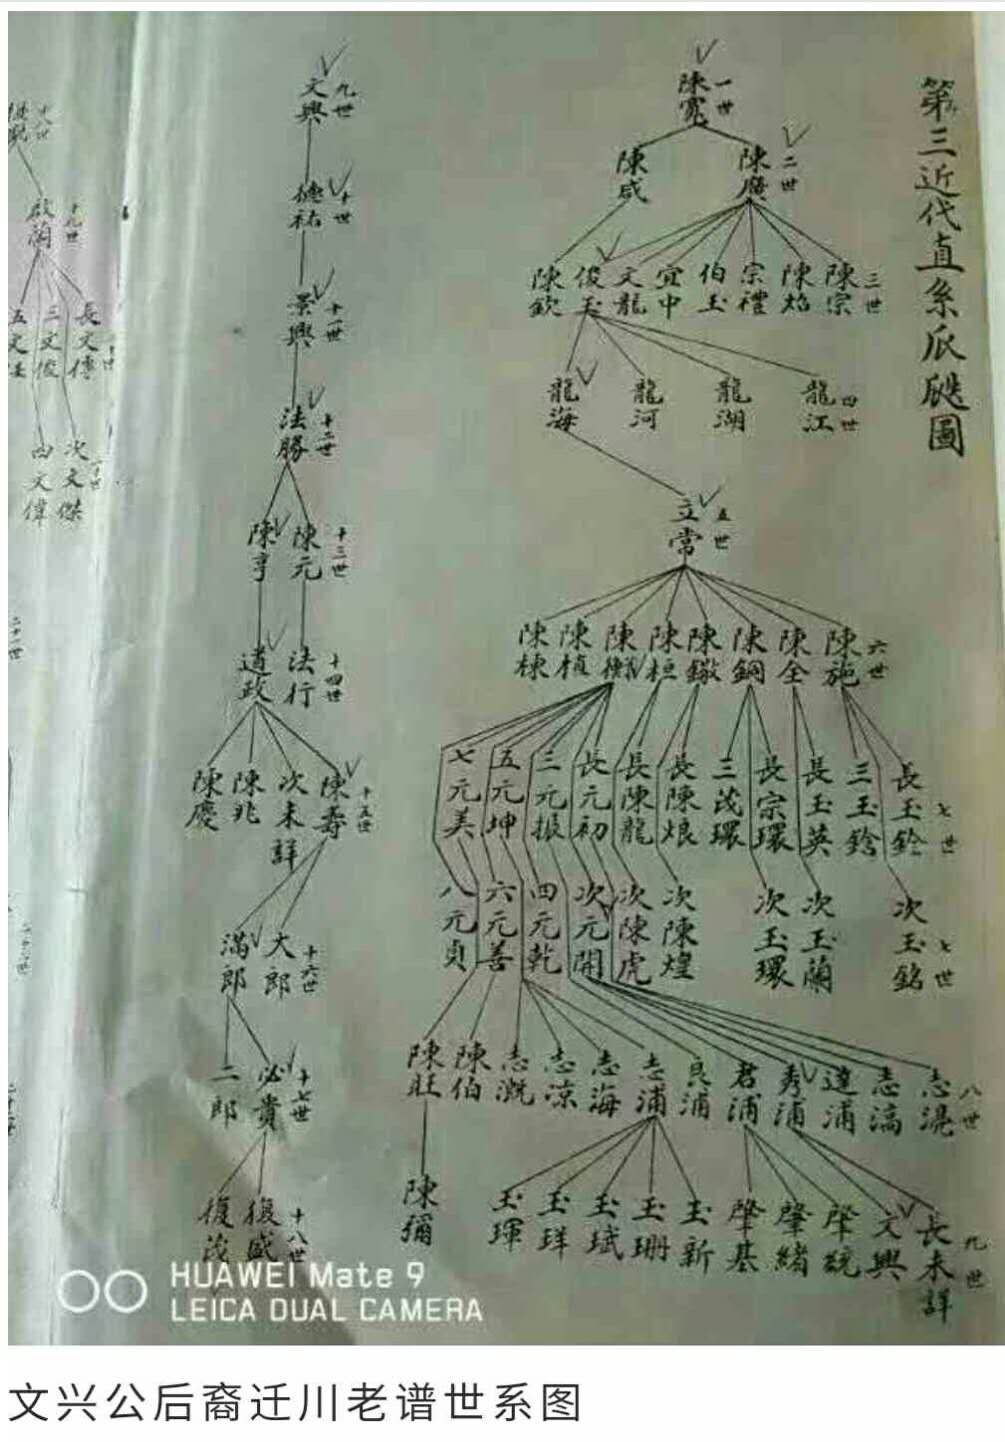 第三近代直系瓜瓞圖
陳寬 一世
陳咸 陳廣 二世
陳欽 俊玉 文龍 宜中 伯玉 宗禮 陳焰 陳宗 三世
龍海 龍河 龍湖 龍江 四世
立常 五世
陳棟 陳楨 陳衡 陳桓 陳鏾 陳鋼 陳全 陳施 六世
七元美 五元坤 三元振 長元初 長陳龍 長陳烺 三茂環 長宗環 長玉英 三玉鎗 長玉銓 七世
八元貞 六元善 四元乾 次元開 次陳虎 次陳煌 次玉環 次玉蘭 次玉銘 七世
陳旺 陳伯 志溉 志凉 志海 志浦 良浦 君浦 秀浦 達浦 志滈 志滉 八世
陳彌 玉琿 玉珜 玉珷 玉珊 玉新 肇基 肇緒 肇統 文興 長未詳 九世
文興 九世
德祐 十世
景興 十一世
法勝 十二世
陳亨 陳元 十三世
道政 法行 十四世
陳慶 陳兆 次未詳 陳壽 十五世
滿郎 大郎 十六世
二郎 必貴 十七世
復茂 復盛 十八世
啟蘭 十九世
五文 三文俊 長文傳
四文偉 次文傑
二十一世
HUAWEI Mate 9
LEICA DUAL CAMERA
文兴公后裔迁川老谱世系图